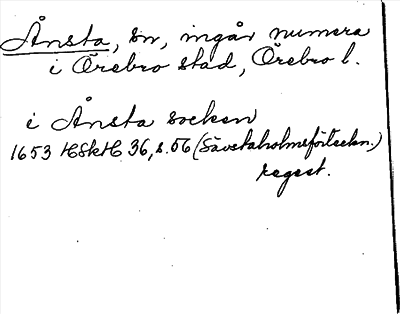 Ånsta, sn, ingår numera
i Örebro stad, Örebro l.
i Ånsta socken
1653 HSkH 36, s. 56 (Sävstaholmsförteckn.)
regest.